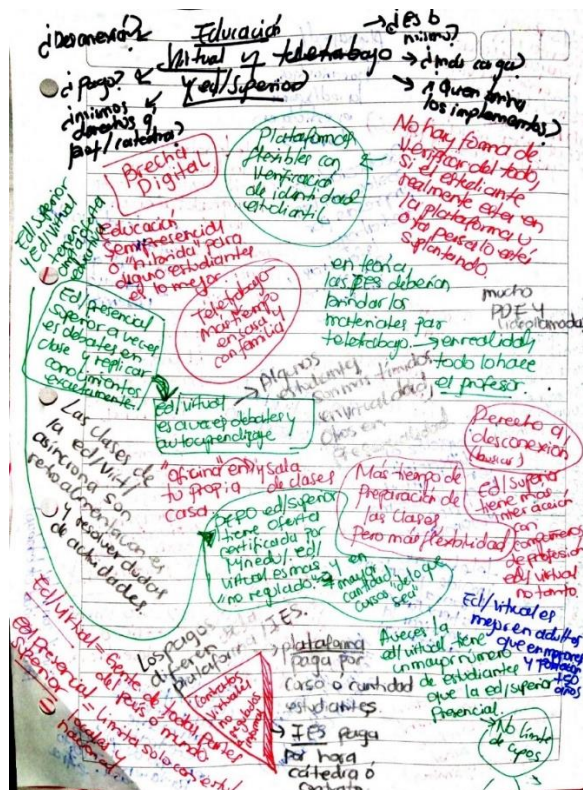 Educación
Virtual y teletrabajo
y ed/Superior
¿Desconexión?
¿Pago?
¿mismos
derechos q'
prof/catedra?
¿Es lo
mismo?
¿más carga?
¿Quien
los implementos?
Brecha
Digital
Plataformas
flexibles con
verificación
de identidad
estudiantil
No hay forma de
verificar del todo,
si el estudiante
realmente esta en
la plataforma u
otra persona lo está
suplantando.
Ed/Superior
y Ed/Virtual
Educación
Semipresencial
o "hibrida" para
alguno estudiantes
es lo mejor
Teletrabajo
Mas tiempo
en casa y
con familia
en teoría,
las IES deberían
brindar los
materiales par
teletrabajo. → en realidad
todo lo hace
el profesor.
mucho
PDF y
videollamadas
Ed/presencial
Superior a veces
es debates en
clase y replicar
conocimientos
exactamente.
ed/virtual
es a veces debates y
autoaprendizaje
Algunos
estudiantes
son mas tímidos
en virtualidad,
otros en
presencialidad
Derecho a
desconexión
Las clases de
la ed/Virt/
asincrona son
retroalimentación
y resolver dudas
de actividades.
"Oficina" en y sala
tu propia de clases
casa
Mas tiempo de
Preparación de
las clases
Pero mas flexibilidad
ed/Superior
tiene mas
interacción
con
compañeros
de profesión
ed/virtual
no tanto.
PERO ed/superior
tiene oferta
certificada por
Minedu/. ed/
virtual es mas
"no regulado" y en
mayor
cantidad,
cursos de lo que
sea
Ed/virtual = Gente de todas partes
del país o mundo
Ed/presencial = Limita solo con est/
Superior locales y
nacional
Los pagos
difieren
plataforma / IES.
Contratos
virtuales
no
regulados
→ plataforma
paga por
curso o cantidad
estudiantes.
→ IES paga
por hora
cátedra ó
contrato
A veces la
ed/virtual tiene
un mayor número
de estudiantes
que la ed/superior
presencial.
Ed/virtual es
mejor en adultos
que en menores
y
+50
años
No limite
de cupos